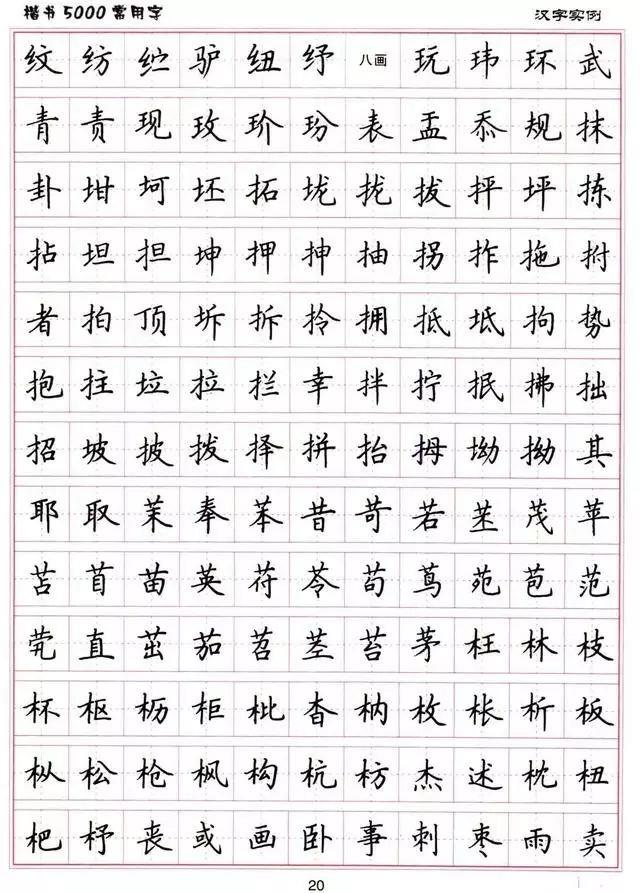 楷书5000常用字 汉字实例
纹 纺 纻 驴 纽 纾 八画 玩 玮 环 武
青 责 现 玫 玠 玢 表 盂 忝 规 抹
卦 坩 坷 坯 拓 垅 拢 拔 抨 坪 拣
拈 坦 担 坤 押 抻 抽 拐 拃 拖 拊
者 拍 顶 坼 拆 拎 拥 抵 坻 拘 势
抱 拄 垃 拉 拦 幸 拌 拧 抿 拂 拙
招 坡 披 拨 择 拼 抬 拇 坳 拗 其
耶 取 茉 奉 苯 昔 苛 若 茂 苹
苫 苜 苗 英 苻 苓 苟 茑 苑 苞 范
茕 直 茁 茄 苕 茎 苔 茅 枉 林 枝
杯 枢 枥 柜 枇 杳 枘 枚 枨 析 板
枞 松 枪 枫 构 杭 枋 杰 述 枕 杻
杷 杼 丧 或 画 卧 事 刺 枣 雨 卖
20